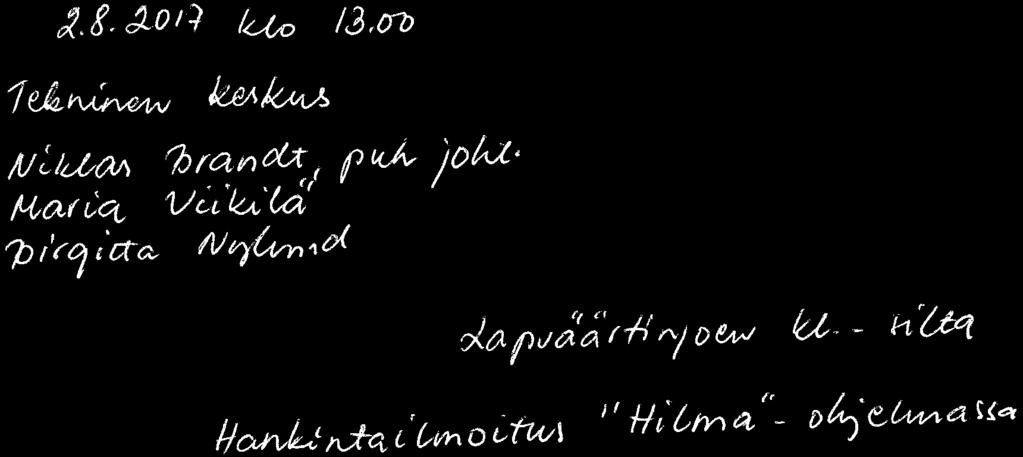 2.8.2017 klo 13.00
Tekninen keskus
Niklas Brandt, puh joht.
Maria Viikilä
Birgitta Nylund
Lapväärtinjoen kl.- silta
Hankintailmoitus "Hilma"- ohjelmassa